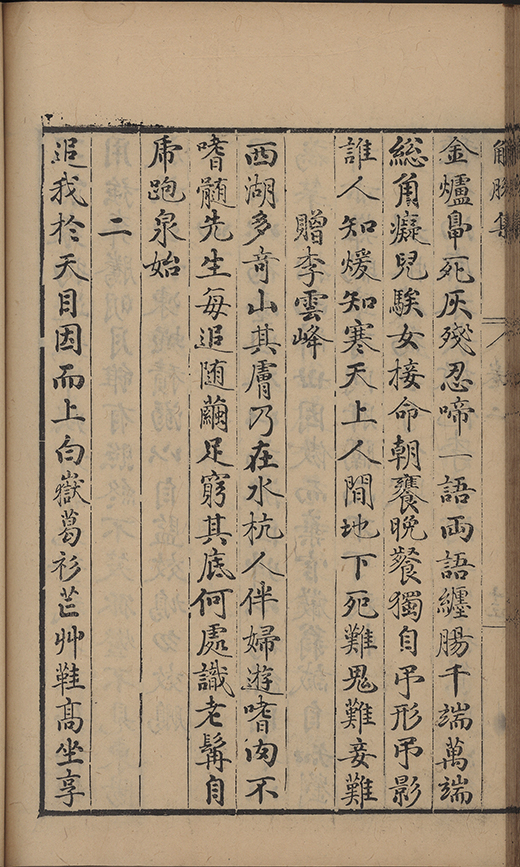 解脫集
金爐畠死灰殘忍啼一語兩語纏腸千端萬端
総角癡兒騃女接命朝饔晚餐獨自弔形弔影
誰人知煖知寒天上人間地下死難鬼難妾難
贈李雲峰
西湖多竒山其膚乃在水杭人伴婦遊嗜肉不
嗜髓先生每追随繭足窮其底何處識老髯自
虎跑泉始
二
追我於天目因而上白嶽葛衫芒艸鞋髙坐享